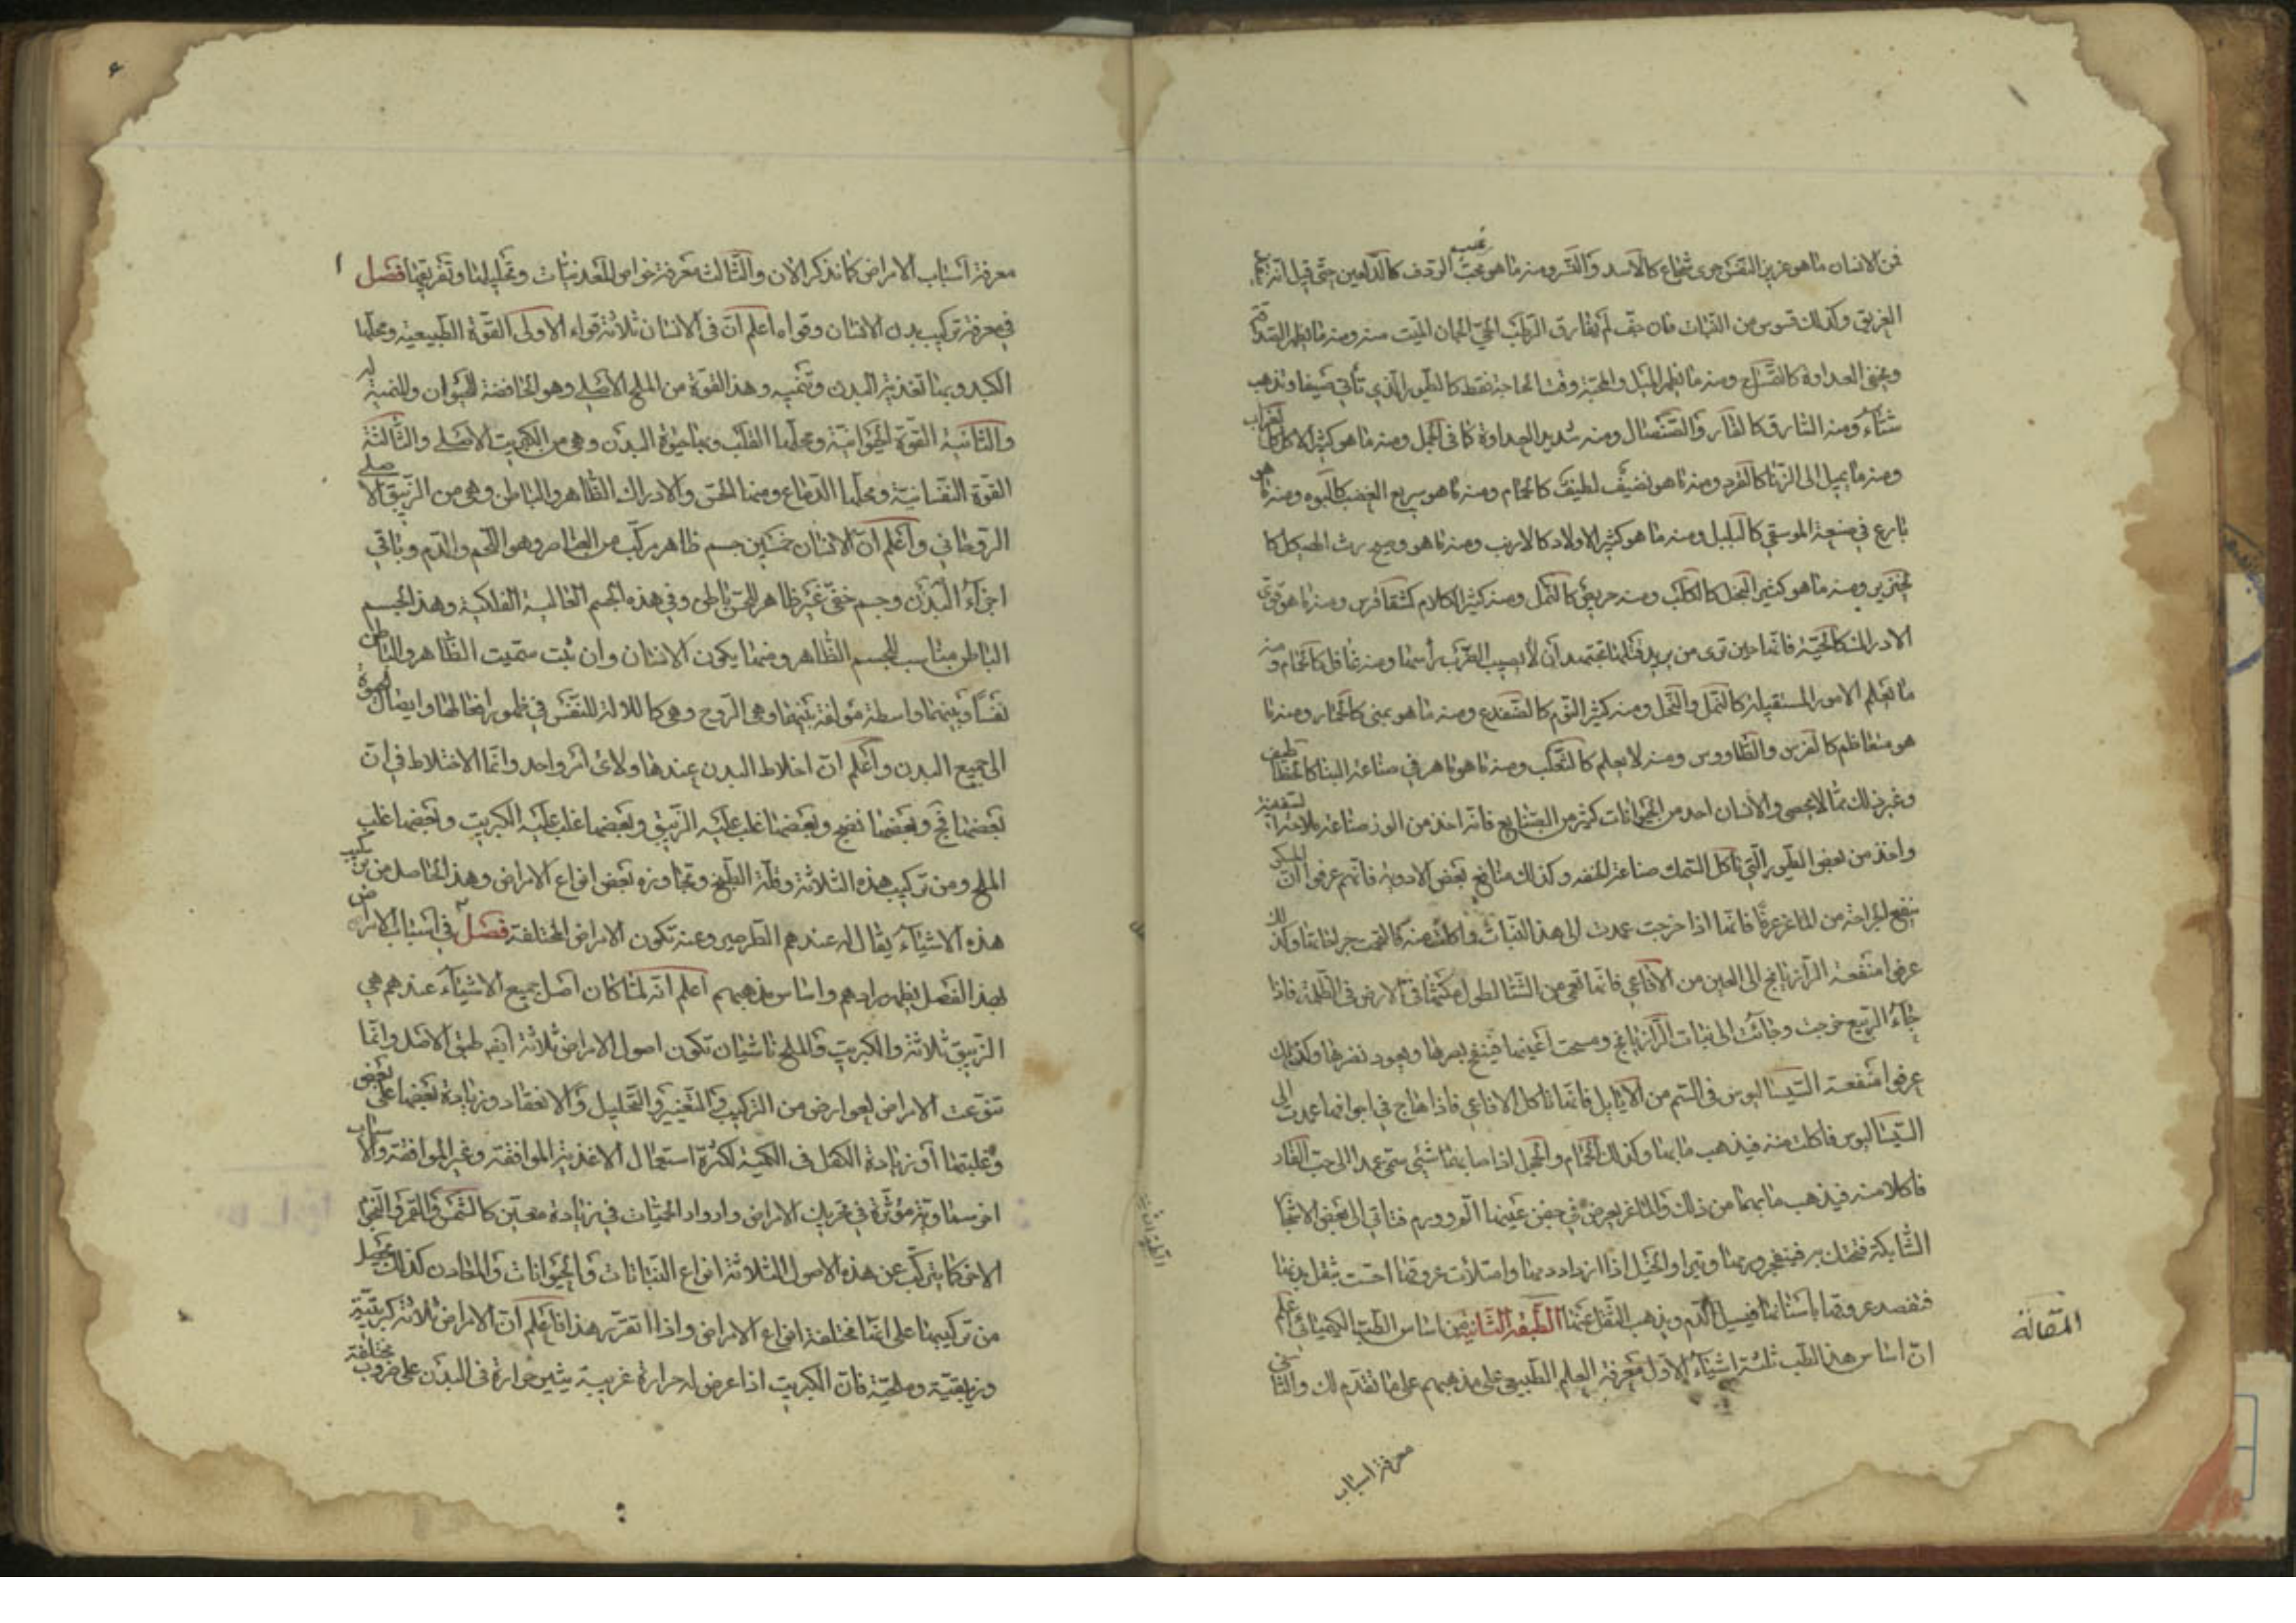 فمن الانسان ما هو عزيز النفس جرى شجاع كالاسد والنسر ومنه ما هو محب
الغريق وكذلك قوس من
ويخفى العداوة ومنه ما يظهر الميل والمحبة وقت الحاجة فقط كالطيور الذي تأتي صيفا وتذهب
شتاء ومنه السارق كالفار ومنه شديد العداوة كما في الجمل ومنه ما هو كثير الاكل كالغراب
ومنه ما يميل الى الزنا كالقرد ومنه ما هو نضيف لطيف كالحمام ومنه ما هو سريع الغضب ومنه ما هو
بارع في صنعة الموسيقى كالبلبل ومنه ما هو كثير الاولاد كالارنب ومنه ما هو وسخ رث الهيكل كا
لخنزير ومنه ما هو كثير البخل كالكلب ومنه حريص كالنمل ومنه كثير الكلام ومنه ما هو قوى
الادراك كالحية فانها حين ترى من يريد قتلها تجتهد ان لا يصيب الضرب رأسها ومنه غافل كالحمام ومنه
ما يعلم الامور المستقبلة كالنمل والنحل ومنه كثير النوم كالضفدع ومنه ما هو كالحمار ومنه ما
هو متعاظم كالفرس والطاووس ومنه لا يعلم كالثعلب ومنه ما هو ماهر في صناعة البنا كالخطاطيف
وغير ذلك مما لا يحصى والانسان اخذ من الحيوانات كثير من الصنايع فانه اخذ من الوز صناعة
واخذ من بعض الطيور التي تأكل السمك صناعة الحقنه وكذلك منافع بعض الادوية فانهم عرفوا ان
ينفع الجراحة من الماغز فانها اذا خرجت عمدت الى هذا النبات واكلت منه فالتحمت جراحاتها وكذلك
عرفوا منفعة الرازيانج الى العين من الافاعي فانها تعمى من الشتا لطول مكثها في الارض في الظلمة فاذا
جاء الربيع خرجت وجائت الى نبات الرازيانج ومسحت اعينها فينفتح بصرها ويعود نضرها وكذلك
عرفوا منفعة السيسالیوس في السم من الايايل فانها تاكل الافاعي فاذا هاج في اجوافها عمدت الى
السيسالیوس فاكلت منه فيذهب ما بها وكذلك الحمام والحجل اذا اصابها شئ سمى عمدا الى حب الغار
فاكلا منه فيذهب ما بهما من ذلك والماغز يعرض في جفن عينها ورم فتأتي الى بعض الاشجار
الشايكة فتحتك به فينفجر ورمها وتبرا والخيل اذا ازداد دمها وامتلأت عروقها احست بثقل بدنها
فتفصد عروقها باسنانها فيسيل الدم ويذهب الثقل عنها الطبقة الثانية في اساس الطب الكيميائى اعلم
ان اساس هذا الطب ثلثة اشياء الاول معرفة العلم الطبيعى على مذهبهم على ما تقدم لك والثانى
المقالة
معرفة اسباب
معرفة اسباب الامراض كما نذكر الان والثالث معرفة خواص المعدنيات وتحليلها وتفريقها فصل
في معرفة تركيب بدن الانسان وقواه اعلم ان في الانسان ثلاثة قواء الاولى القوة الطبيعية ومحلها
الكبد وبها تغذية البدن وتنميه وهذا القوة من الملح الاصلى وهو الحافضة للحيوان والمنمية له
والثانية القوة الحيوانية ومحلها القلب وبها حيوة البدن وهى من الكبريت الاصلى والثالثة
القوة النفسانية ومحلها الدماغ ومنها الحس والادراك الظاهر والباطن وهى من الزيبق الاصلى
الروحاني واعلم ان الانسان جسم ظاهر مركب من العناصر وهو اللحم والدم وباقي
اجزاء البدن وجسم خفى غير ظاهر للحس باطن وفي هذه الجسم الفلكية وهذا الجسم
الباطن مناسب للجسم الظاهر ومنهما يكون الانسان وان شئت سميت الظاهر والباطن
نفسا وبينهما واسطة مؤلفة بينهما وهى الروح وهى كالالة للنفس في ظهور افعالها وايصال الحيوة
الى جميع البدن واعلم ان اخلاط البدن عندها ولاء اثر واحد وانما الاختلاط في ان
بعضها فج وبعضها نضج وبعضها غلب عليه الزيبق وبعضها غلب عليه الكبريت وبعضها غلب
الملح ومن تركيب هذه الثلاثة وقلة الطبخ وتجاوزه بعض انواع الامراض وهذا الحاصل من تركيب
هذه الاشياء يقال له عندهم الطرطير وعنه تكون الامراض المختلفة فصل في اسباب الامراض
بهذا الفصل يظهر مرادهم واساس مذهبهم اعلم انه لما كان اصل جميع الاشياء عندهم هي
الزيبق ثلاثة والكبريت والملح ناشيان تكون اصول الامراض ثلاثة ايضا طبق الاصل وانما
تنوعت الامراض لعوارض من التركيب والتغيير والتحليل والانعقاد وزيادة بعضها على بعض
وغلبتها او زيادة الكل في الكمية لكثرة استعمال الاغذية الموافقة وغير الموافقة والاسباب
اخر سماوية مؤثرة في تحريك الامراض وادوار الحميات في زيادة معين كالشمس والقمر والنجوم
الاخر كما يتركب عن هذه الاصول الثلاثة انواع النباتات والحيوانات والمعادن كذلك يحصل
من تركيبها على انها مختلفة انواع الامراض واذا تقرر هذا فاعلم ان الامراض ثلاثة كبريتية
وزيبقية وملحية فان الكبريت اذا عرض له حرارة غريبة يثير حرارة في البدن على ضروب مختلفة